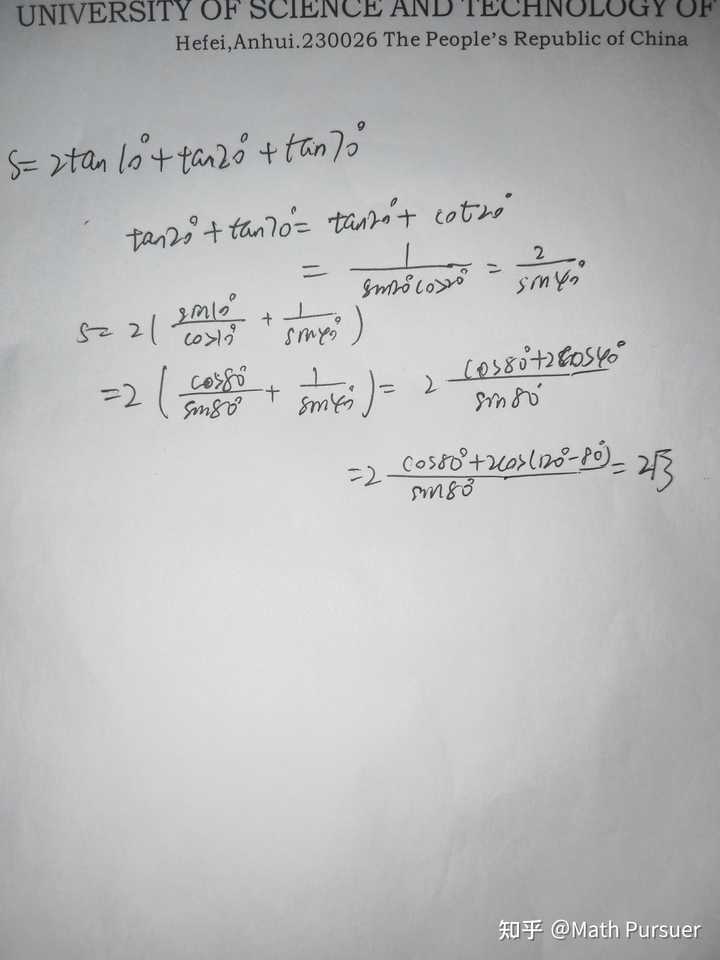 UNIVERSITY OF SCIENCE AND TECHNOLOGY OF
Hefei,Anhui.230026 The People's Republic of China
S= 2tan10°+tan20°+tan70°
tan20°+tan70°= tan20°+ cot20°
= 1/(sin20°cos20°) = 2/sin40°
S= 2( sin10°/cos10° + 1/sin40° )
=2 ( cos80°/sin80° + 1/sin40° )= 2 (cos80°+2cos40°)/sin80°
=2 (cos80°+2cos(120°-80°))/sin80° = 2√3
知乎 @Math Pursuer